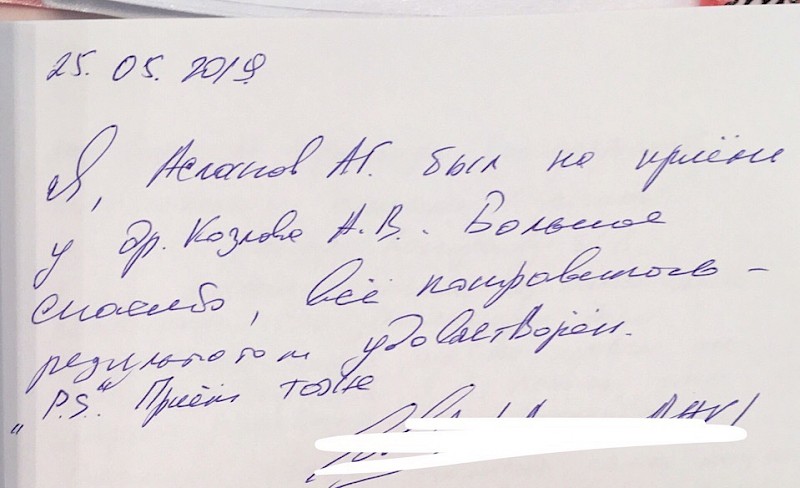 25.05.2019
Я, Асланов А.Г. был на приёме
у др. Козлова А.В. Большое
спасибо, всё понравилось –
результатом удовлетворён.
"P.S." Приём тоже